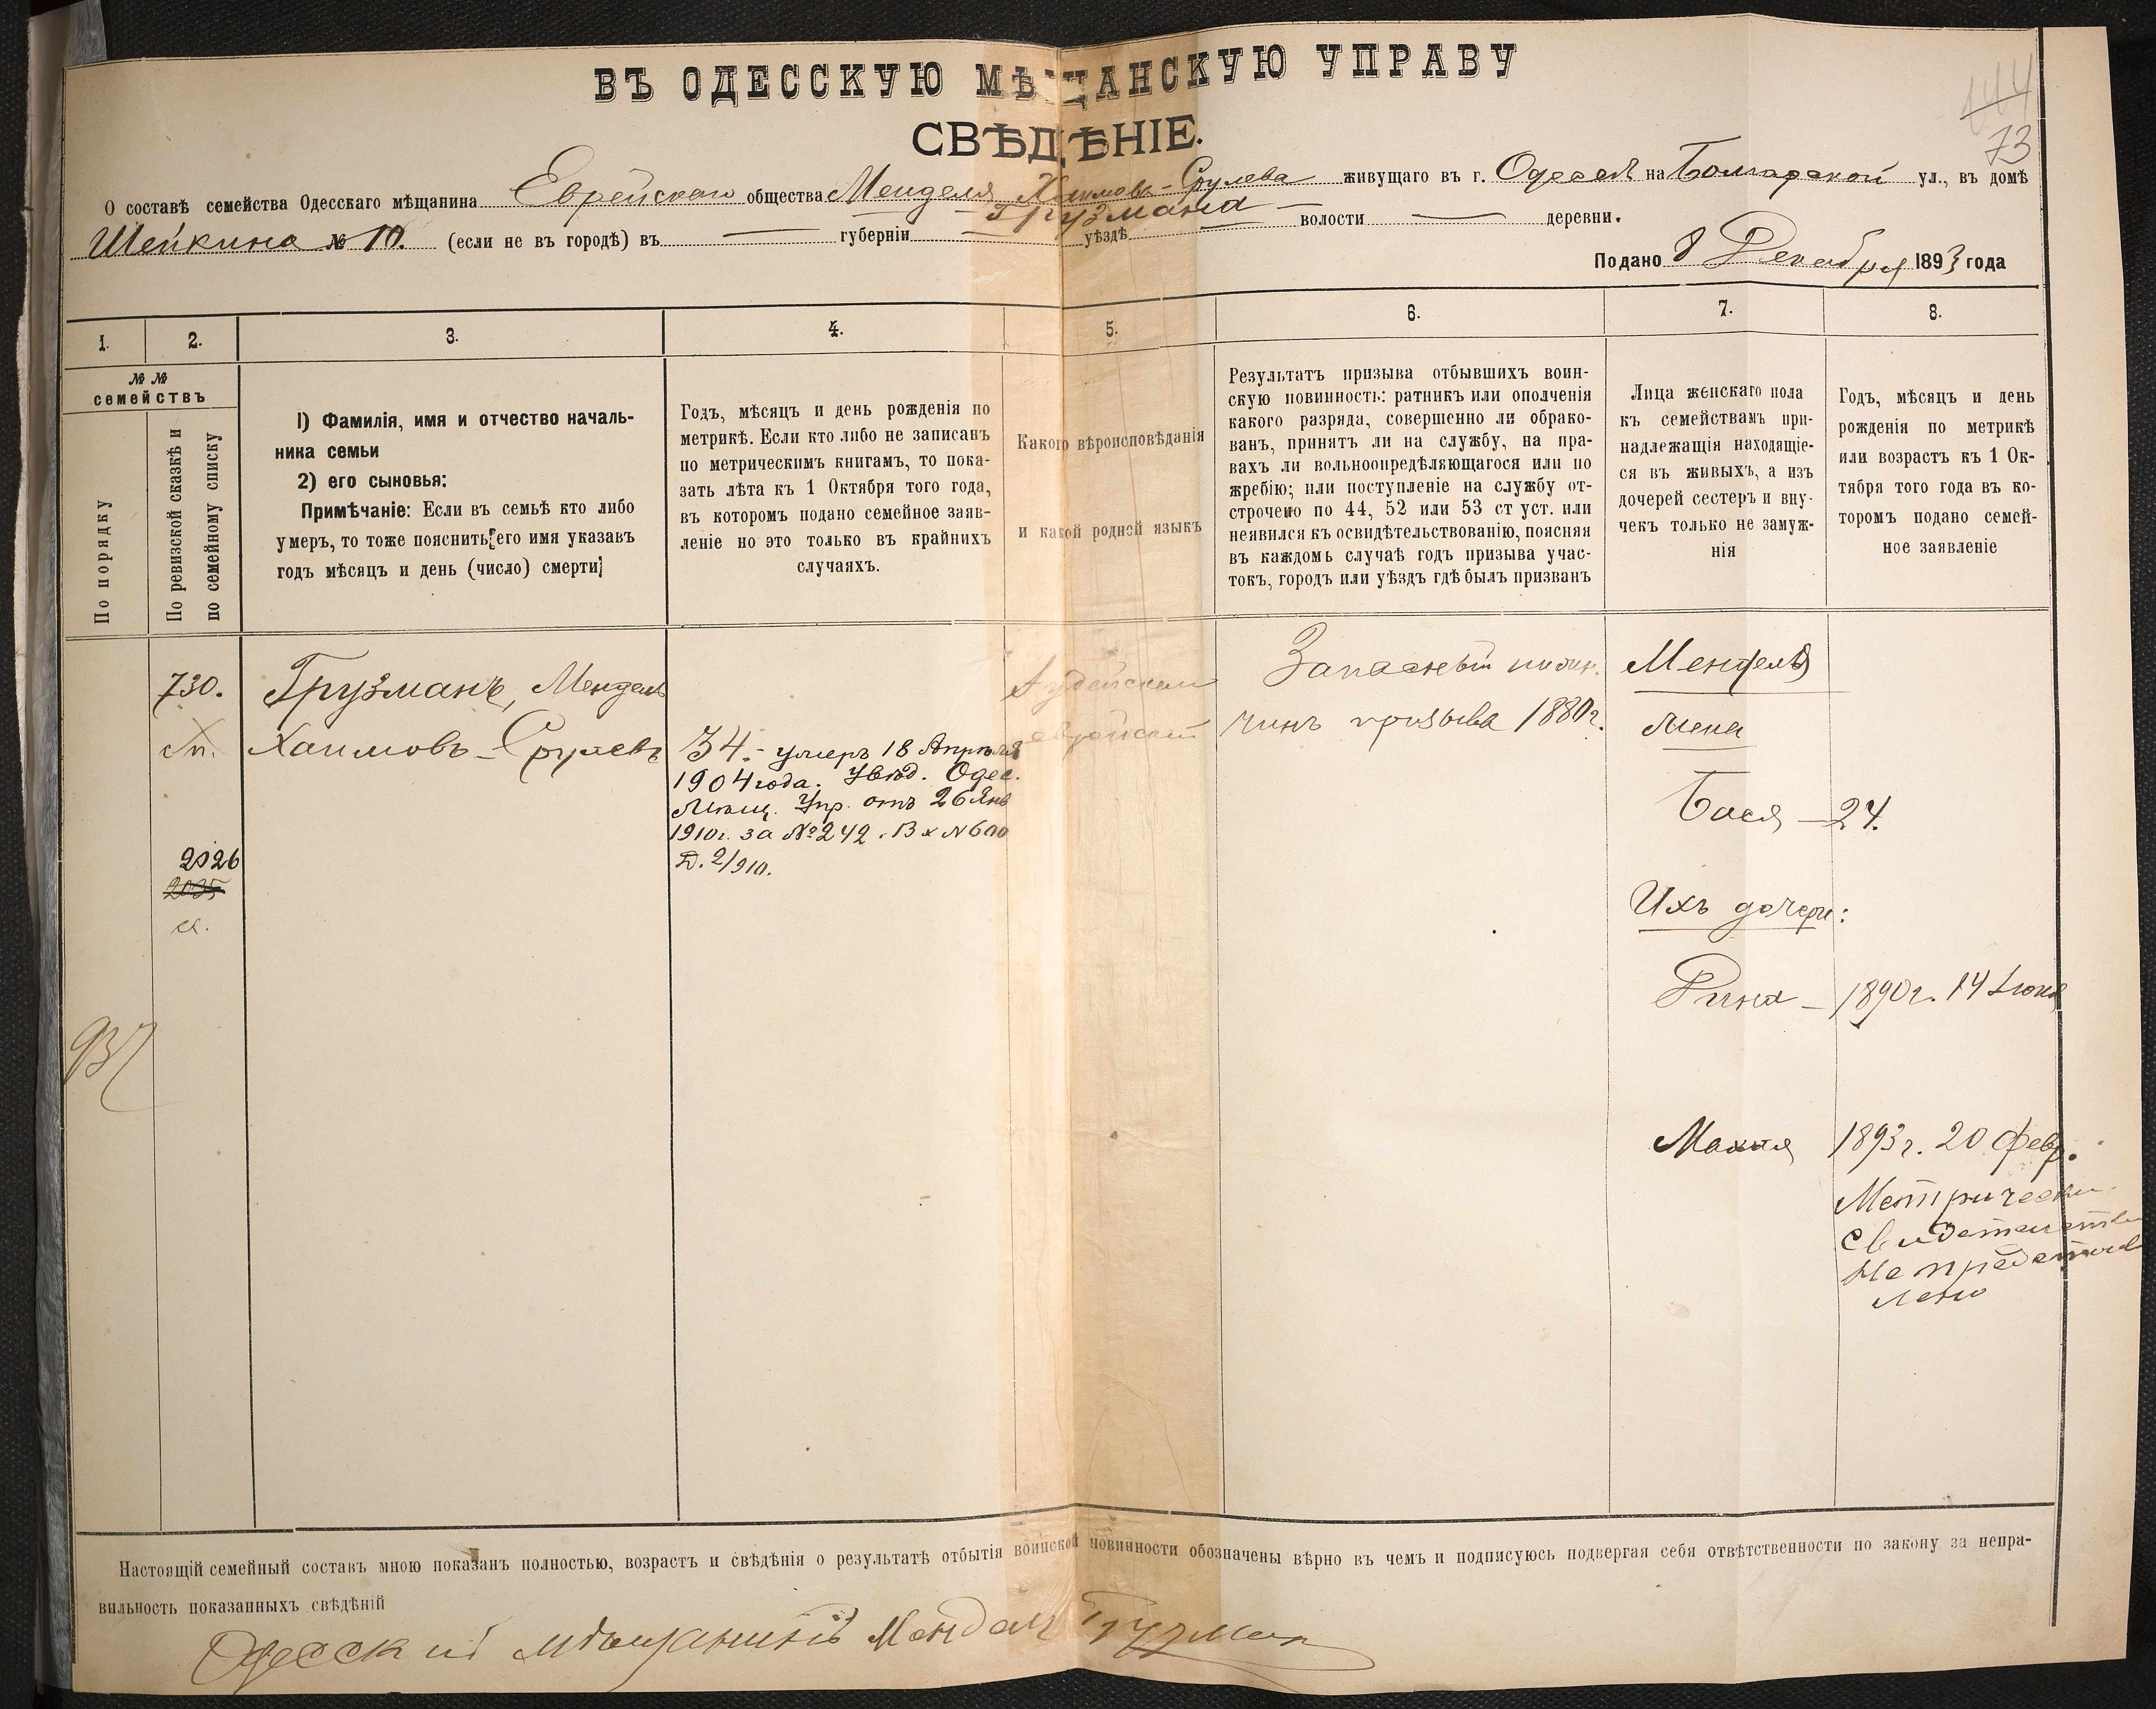 ВЪ ОДЕССКУЮ МѢЩАНСКУЮ УПРАВУ
144
73
СВѢДѢНІЕ.
О составѣ семейства Одесскаго мѣщанина Еврейскаго общества Менделя Хаимовъ-Срулева живущаго въ г. Одессѣ на Болгарской ул., въ домѣ
- Грузмана -
Шейкина № 10. (если не въ городѣ) въ — губерніи — уѣздѣ — волости — деревни.
Подано 8 Декабря 1893 года
1. 2. 3. 4. 5. 6. 7. 8.
№ № семействъ
По порядку
По ревизской сказкѣ и
по семейному списку
1) Фамилія, имя и отчество началь-
ника семьи
2) его сыновья:
Примѣчаніе: Если въ семьѣ кто либо
умеръ, то тоже пояснить его имя указавъ
годъ мѣсяцъ и день (число) смерти;
Годъ, мѣсяцъ и день рожденія по
метрикѣ. Если кто либо не записанъ
по метрическимъ книгамъ, то пока-
зать лѣта къ 1 Октября того года,
въ которомъ подано семейное заяв-
леніе но это только въ крайнихъ
случаяхъ.
Какого вѣроисповѣданія
и какой родной языкъ
Результатъ призыва отбывшихъ воин-
скую повинность: ратникъ или ополченія
какого разряда, совершенно ли обрако-
ванъ, принятъ ли на службу, на пра-
вахъ ли вольноопредѣляющагося или по
жребію; или поступленіе на службу от-
строчено по 44, 52 или 53 ст уст. или
неявился къ освидѣтельствованію, поясняя
въ каждомъ случаѣ годъ призыва учас-
токъ, городъ или уѣздъ гдѣ былъ призванъ
Лица женскаго пола
къ семействамъ при-
надлежащія находящіе-
ся въ живыхъ, а изъ
дочерей сестеръ и вну-
чекъ только не замуж-
нія
Годъ, мѣсяцъ и день
рожденія по метрикѣ
или возрастъ къ 1 Ок-
тября того года въ ко-
торомъ подано семей-
ное заявленіе
730.
2026
2035
Грузманъ, Мендель
Хаимовъ-Срулевъ
34.- умеръ 18 Апрѣля
1904 года. Увѣд. Одес.
Мѣщ. Упр. отъ 26 Янв
1910г. за №242. Вх N600
Д. 2/910.
Іудейскаго
еврейскій
Запасный нижн.
чинъ призыва 1880г.
Менделя
жена
Бася — 24.
Ихъ дочери:
Рина — 1890г. 14 Іюня
Махля 1893г. 20 февр.
Метрически
свидетельств
не представ
лено
Настоящій семейный составъ мною показанъ полностью, возрастъ и свѣдѣнія о результатѣ отбытія воинской повинности обозначены вѣрно въ чемъ и подписуюсь подвергая себя отвѣтственности по закону за непра-
вильность показанныхъ свѣдѣній
Одесский мѣщанинъ Мендель Грузман